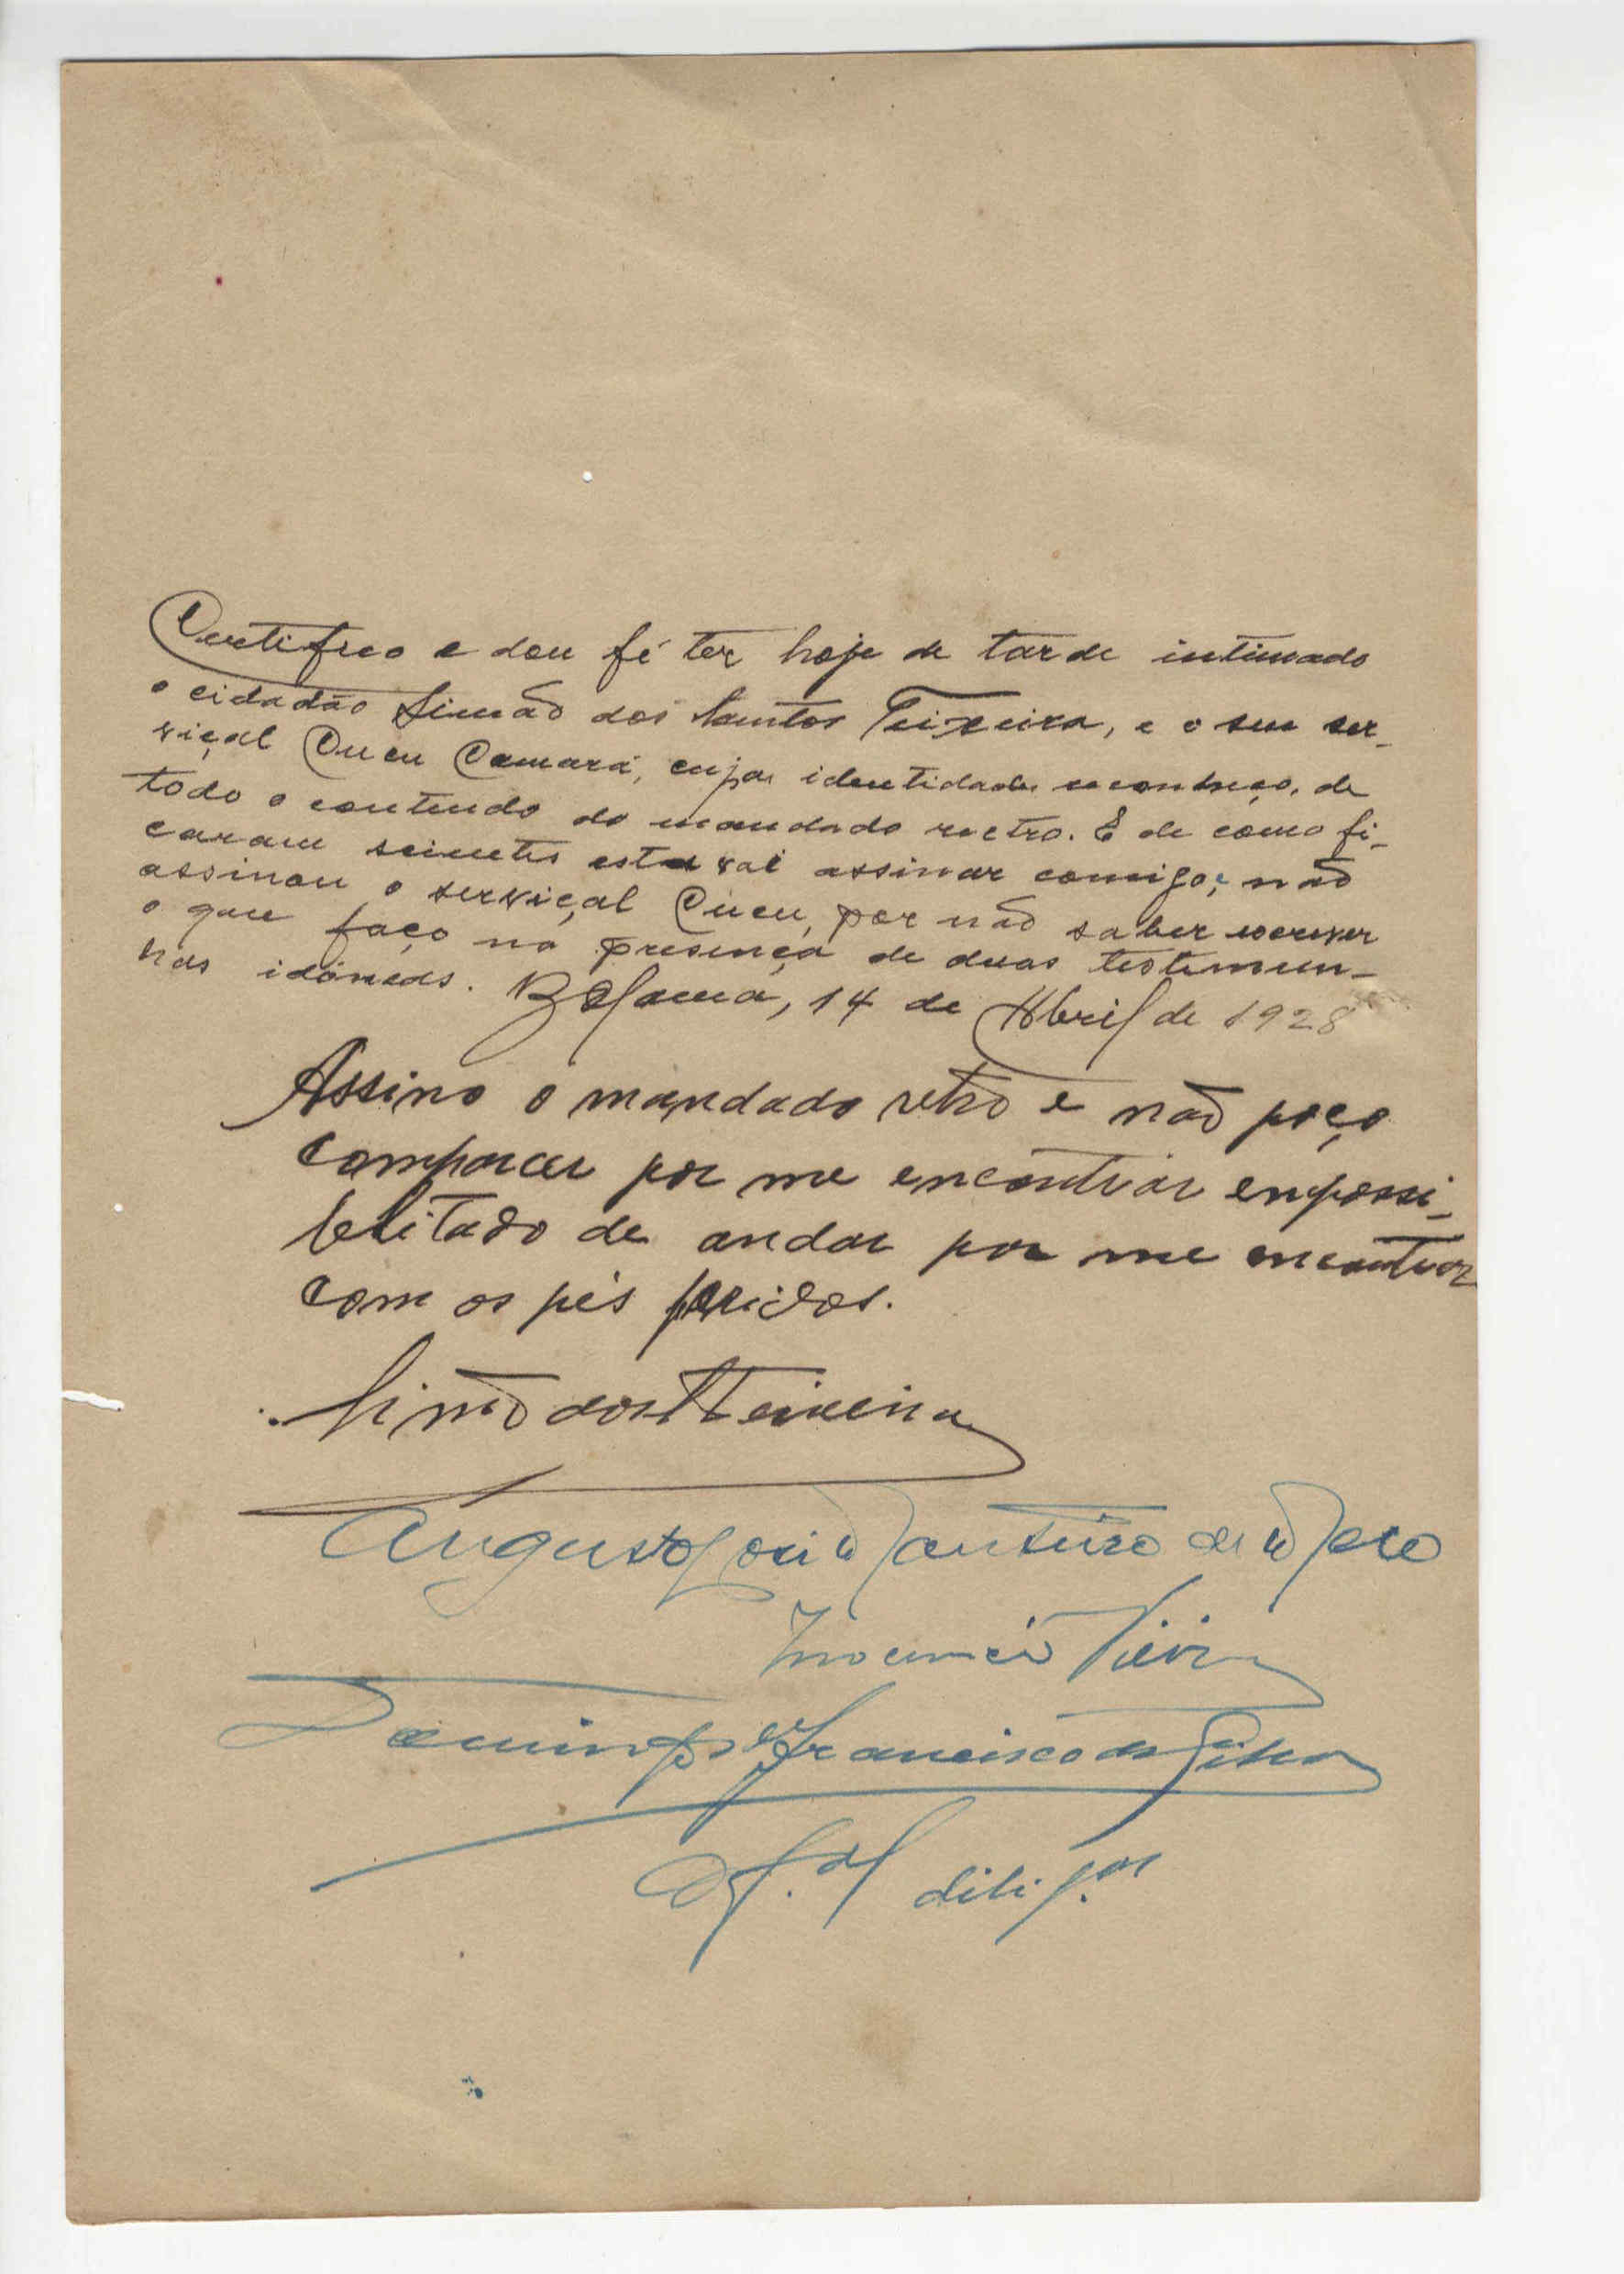 Certifico e dou fé ter hoje de tarde intimado
o cidadão Simão dos Santos Teixeira, e o seu ser-
viçal Cucu Camará, cujas identidades reconheço, de
todo o conteudo do mandado rectro. E de como fi-
caram scientes esta vai assinar comigo, e não
assinou o serviçal Cucu, por não saber escrever
o que faço na presença de duas testemun-
has idóneas. Bolama, 14 de Abril de 1928
Assino o mandado retro e não poço
comparcer por me encontrar empossi-
belitado de andar por me encontrar
com os pés feridos.
Simão dos S Teixeira
Augusto José Monteiro de
Inocencio Vieira
Domingos Francisco da Silva
Of.al dilig.as